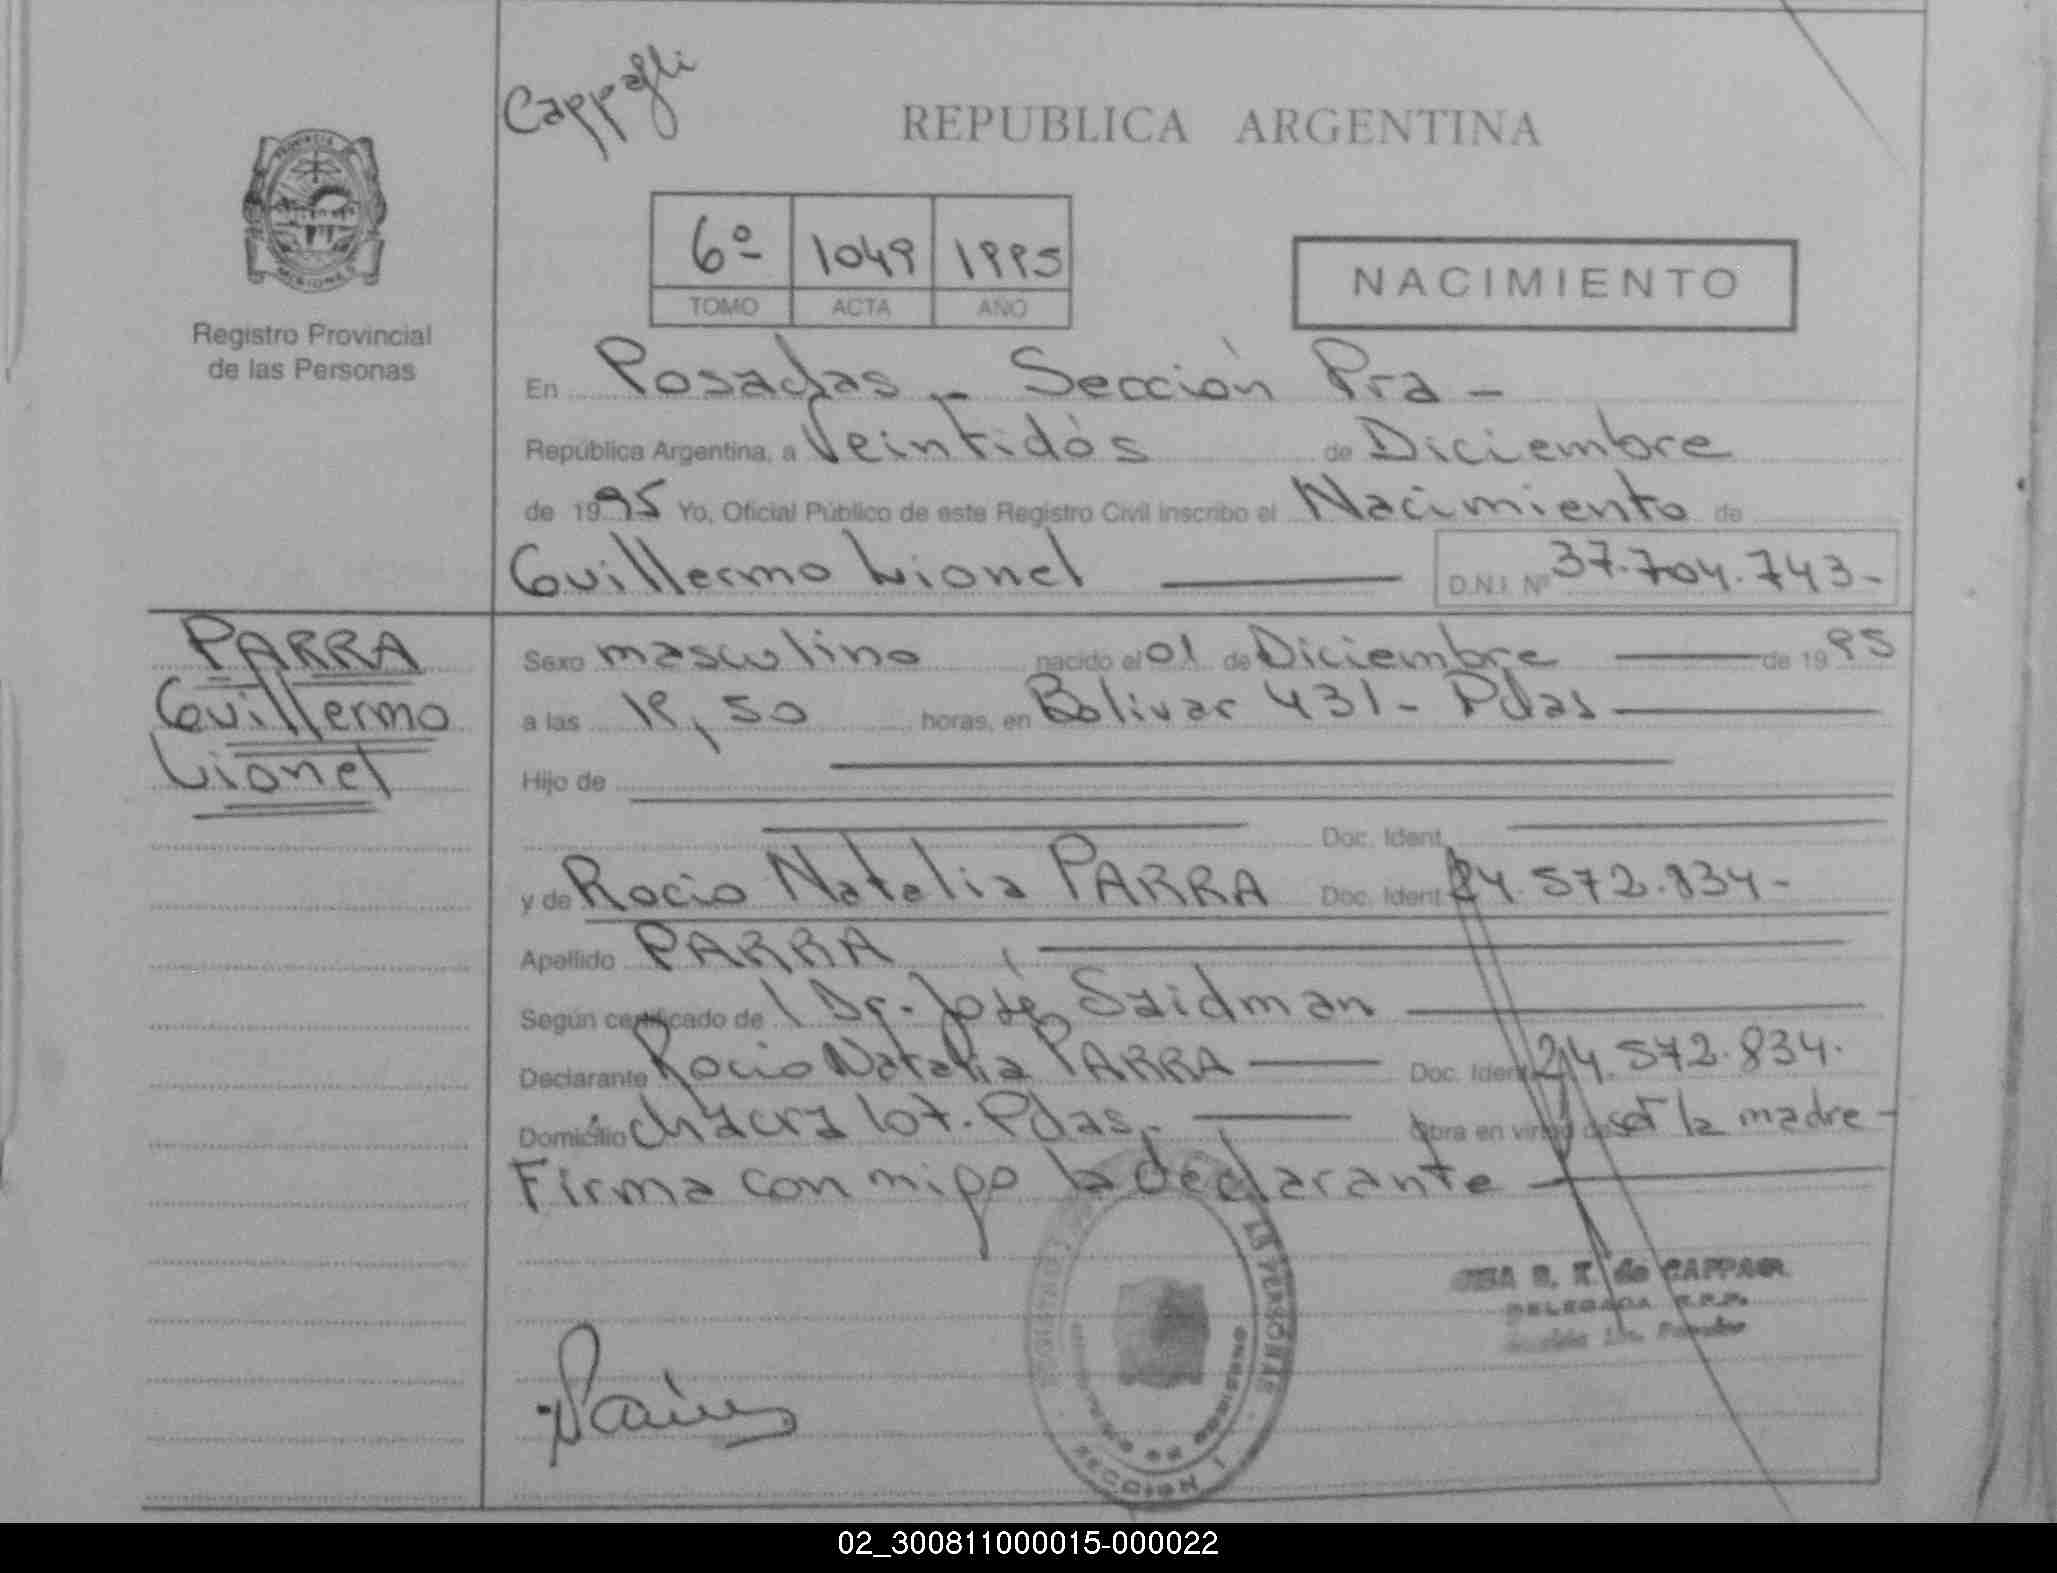 Cappagli
REPUBLICA ARGENTINA
PROVINCIA DE
MISIONES
Registro Provincial
de las Personas
6º 1049 1995
TOMO ACTA AÑO
NACIMIENTO
En Posadas - Sección Pra -
República Argentina, a Veintidós de Diciembre
de 1995 Yo, Oficial Público de este Registro Civil inscribo el Nacimiento de
Guillermo Lionel D.N.I. Nº 37.704.743-
PARRA
Guillermo
Lionel
Sexo masculino nacido el 01 de Diciembre de 1995
a las horas, en Bolivar 431 - Pdas
Hijo de
Doc. Ident.
y de Rocio Natalia PARRA Doc. Ident. 24.572.834-
Apellido PARRA
Según certificado de Dr. José Saidman
Declarante Rocio Natalia PARRA Doc. Ident. 24.572.834.
Domicilio Chacra Pdas. Obra en virtud de ser la madre -
Firma con migo la declarante
DELEGADA R.P.P.
SECCION 1
02_300811000015-000022